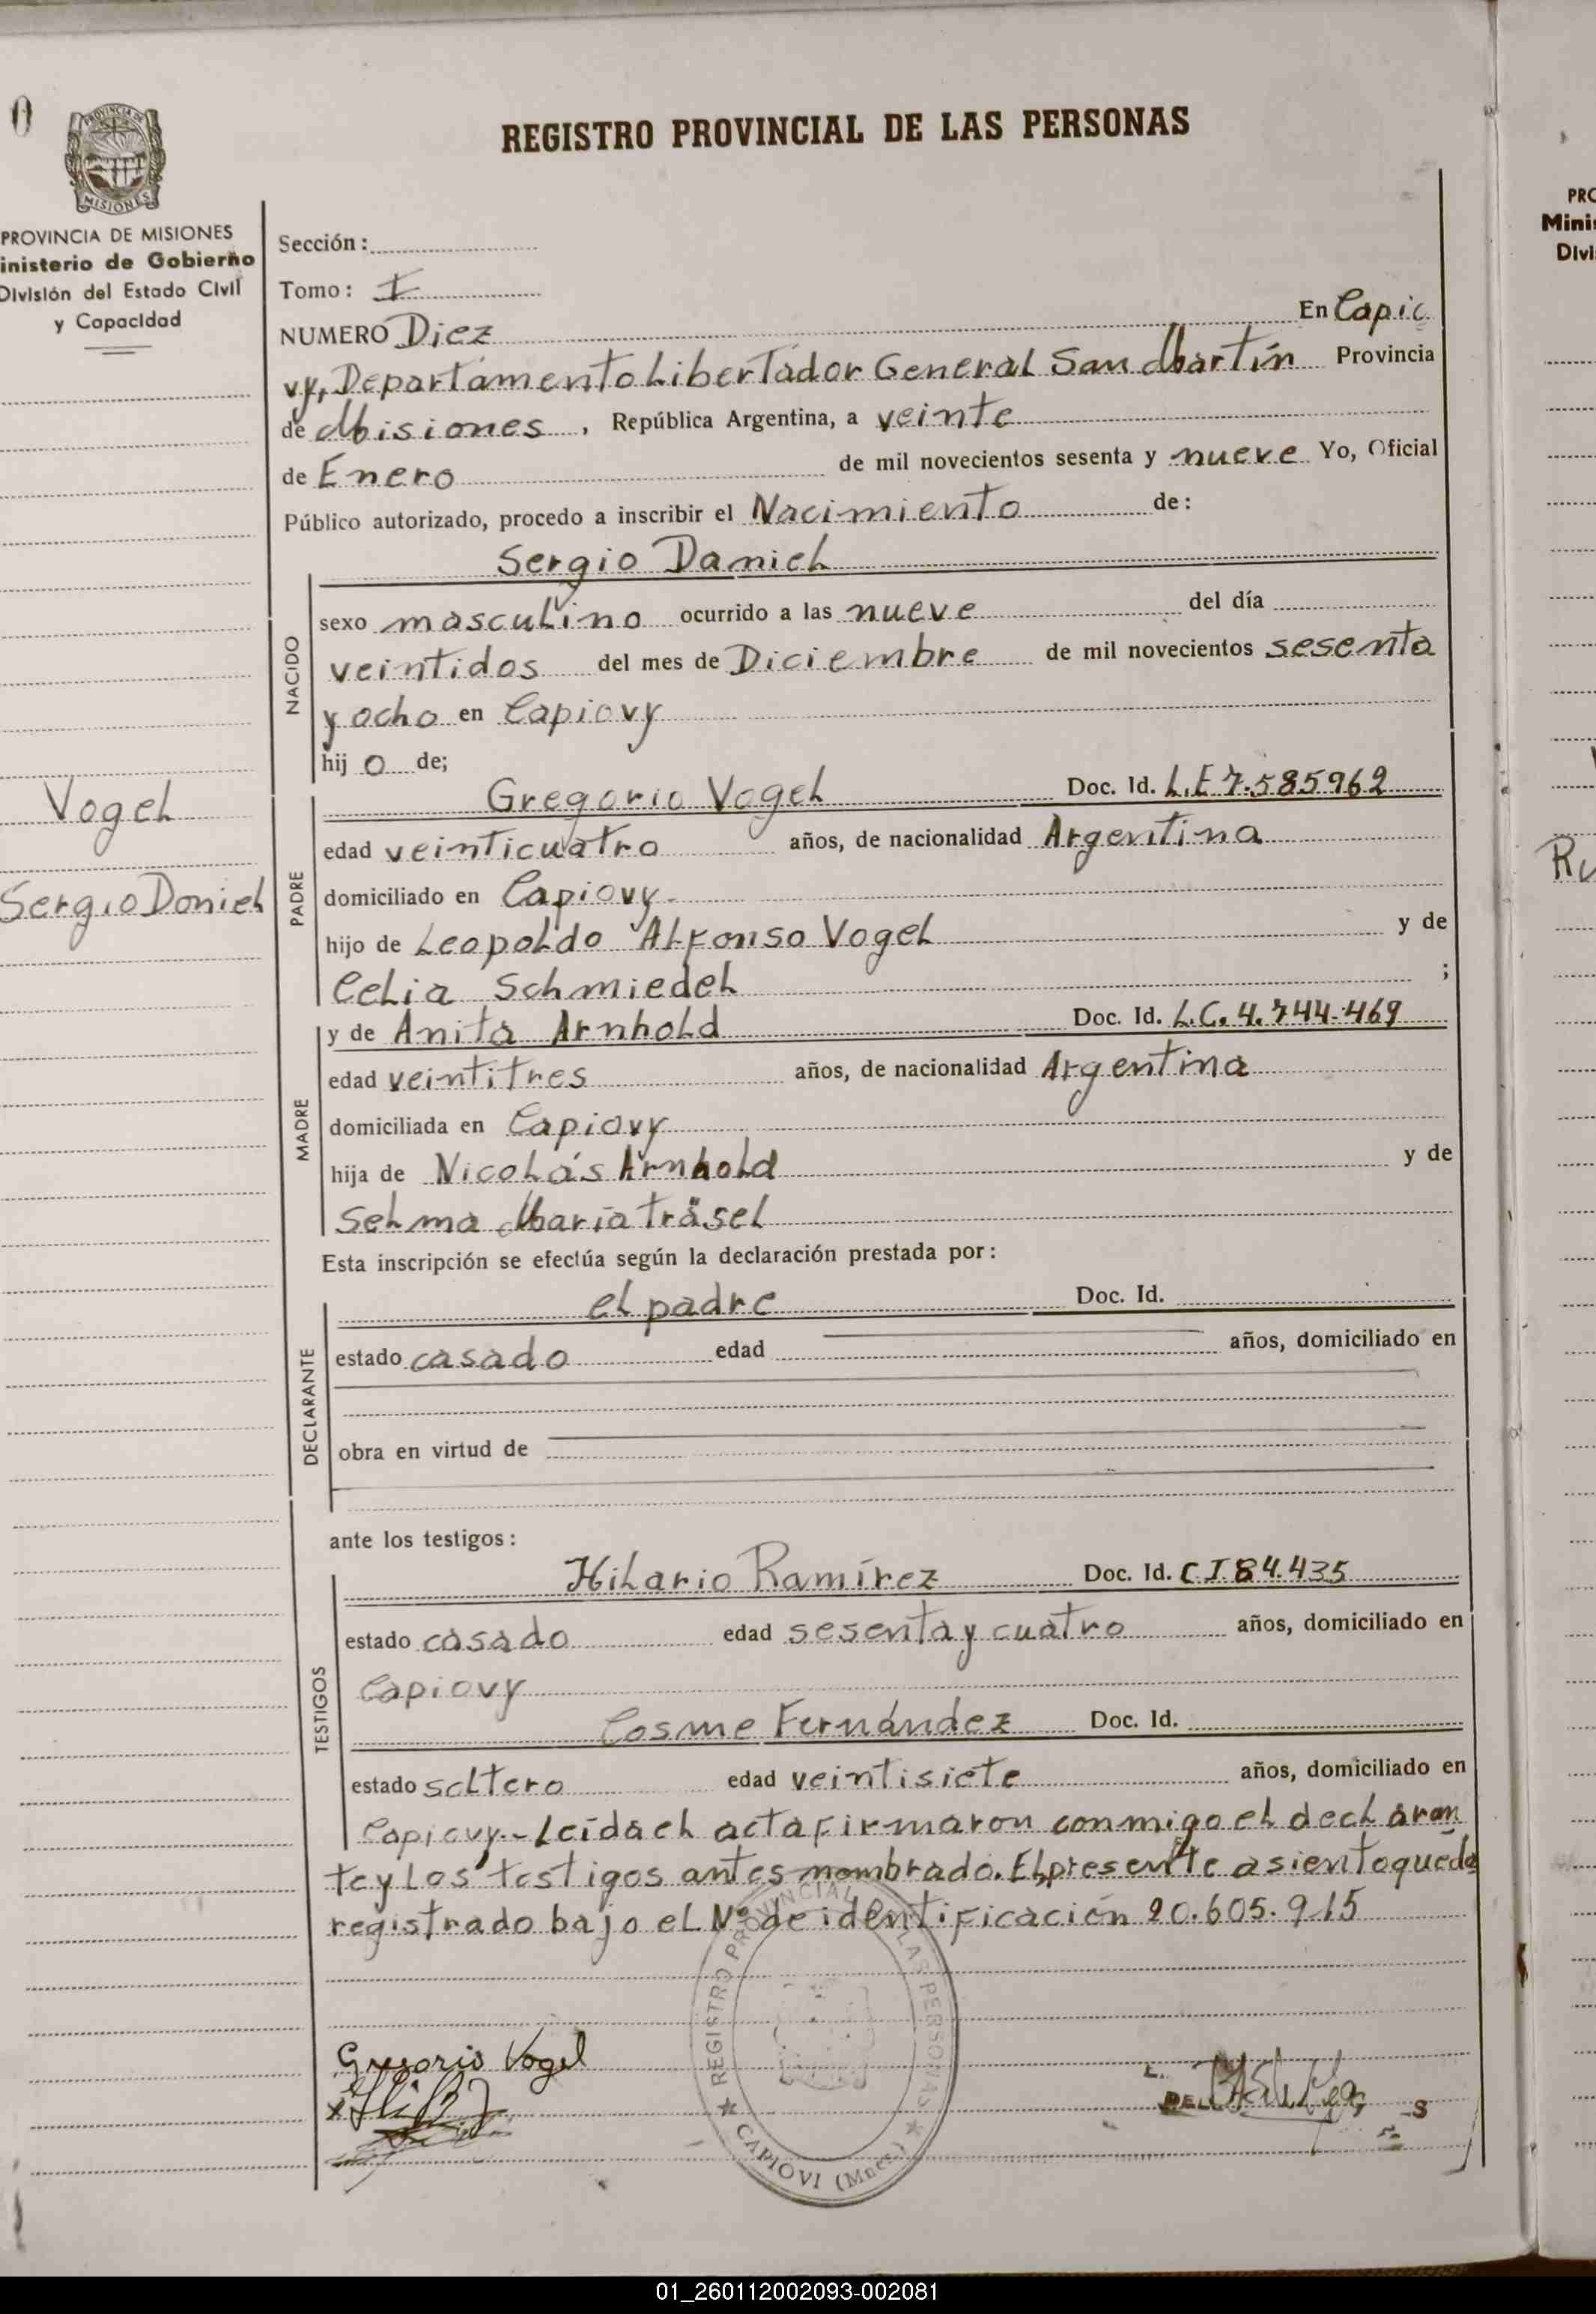 REGISTRO PROVINCIAL DE LAS PERSONAS
PROVINCIA DE MISIONES
PROVINCIA DE MISIONES
inisterio de Gobierno
División del Estado Civil
y Capacidad
Vogel
Sergio Daniel
Sección:
Tomo: I
NUMERO Diez En Capio
vy, Departamento Libertador General San Martín Provincia
de Misiones, República Argentina, a veinte
de Enero de mil novecientos sesenta y nueve Yo, Oficial
Público autorizado, procedo a inscribir el Nacimiento de:
Sergio Daniel
NACIDO
sexo masculino ocurrido a las nueve del día
veintidos del mes de Diciembre de mil novecientos sesenta
y ocho en Capiovy
hij o de;
PADRE
Gregorio Vogel Doc. Id. L.E 7.585962
edad veinticuatro años, de nacionalidad Argentina
domiciliado en Capiovy.
hijo de Leopoldo Alfonso Vogel y de
Celia Schmiedel ;
MADRE
y de Anita Arnhold Doc. Id. L.C. 4.744.469
edad veintitres años, de nacionalidad Argentina
domiciliada en Capiovy
hija de Nicolás Arnhold y de
Selma María Träsel
Esta inscripción se efectúa según la declaración prestada por:
DECLARANTE
el padre Doc. Id.
estado casado edad años, domiciliado en
obra en virtud de
ante los testigos:
TESTIGOS
Hilario Ramírez Doc. Id. C I 84.435
estado casado edad sesenta y cuatro años, domiciliado en
Capiovy
Cosme Fernández Doc. Id.
estado soltero edad veintisiete años, domiciliado en
Capiovy.- Leída el acta firmaron conmigo el declaran
te y los testigos antes nombrado. El presente asiento queda
registrado bajo el Nº de identificación 20.605.915
Gregorio Vogel
REGISTRO PROVINCIAL DE LAS PERSONAS
CAPIOVI (Mnes.)
PRO
Minis
Divi
Ru
01_260112002093-002081